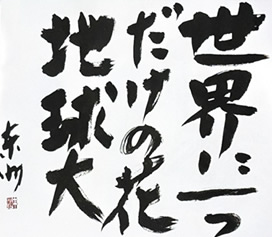 世界に一つ
だけの花
地球大